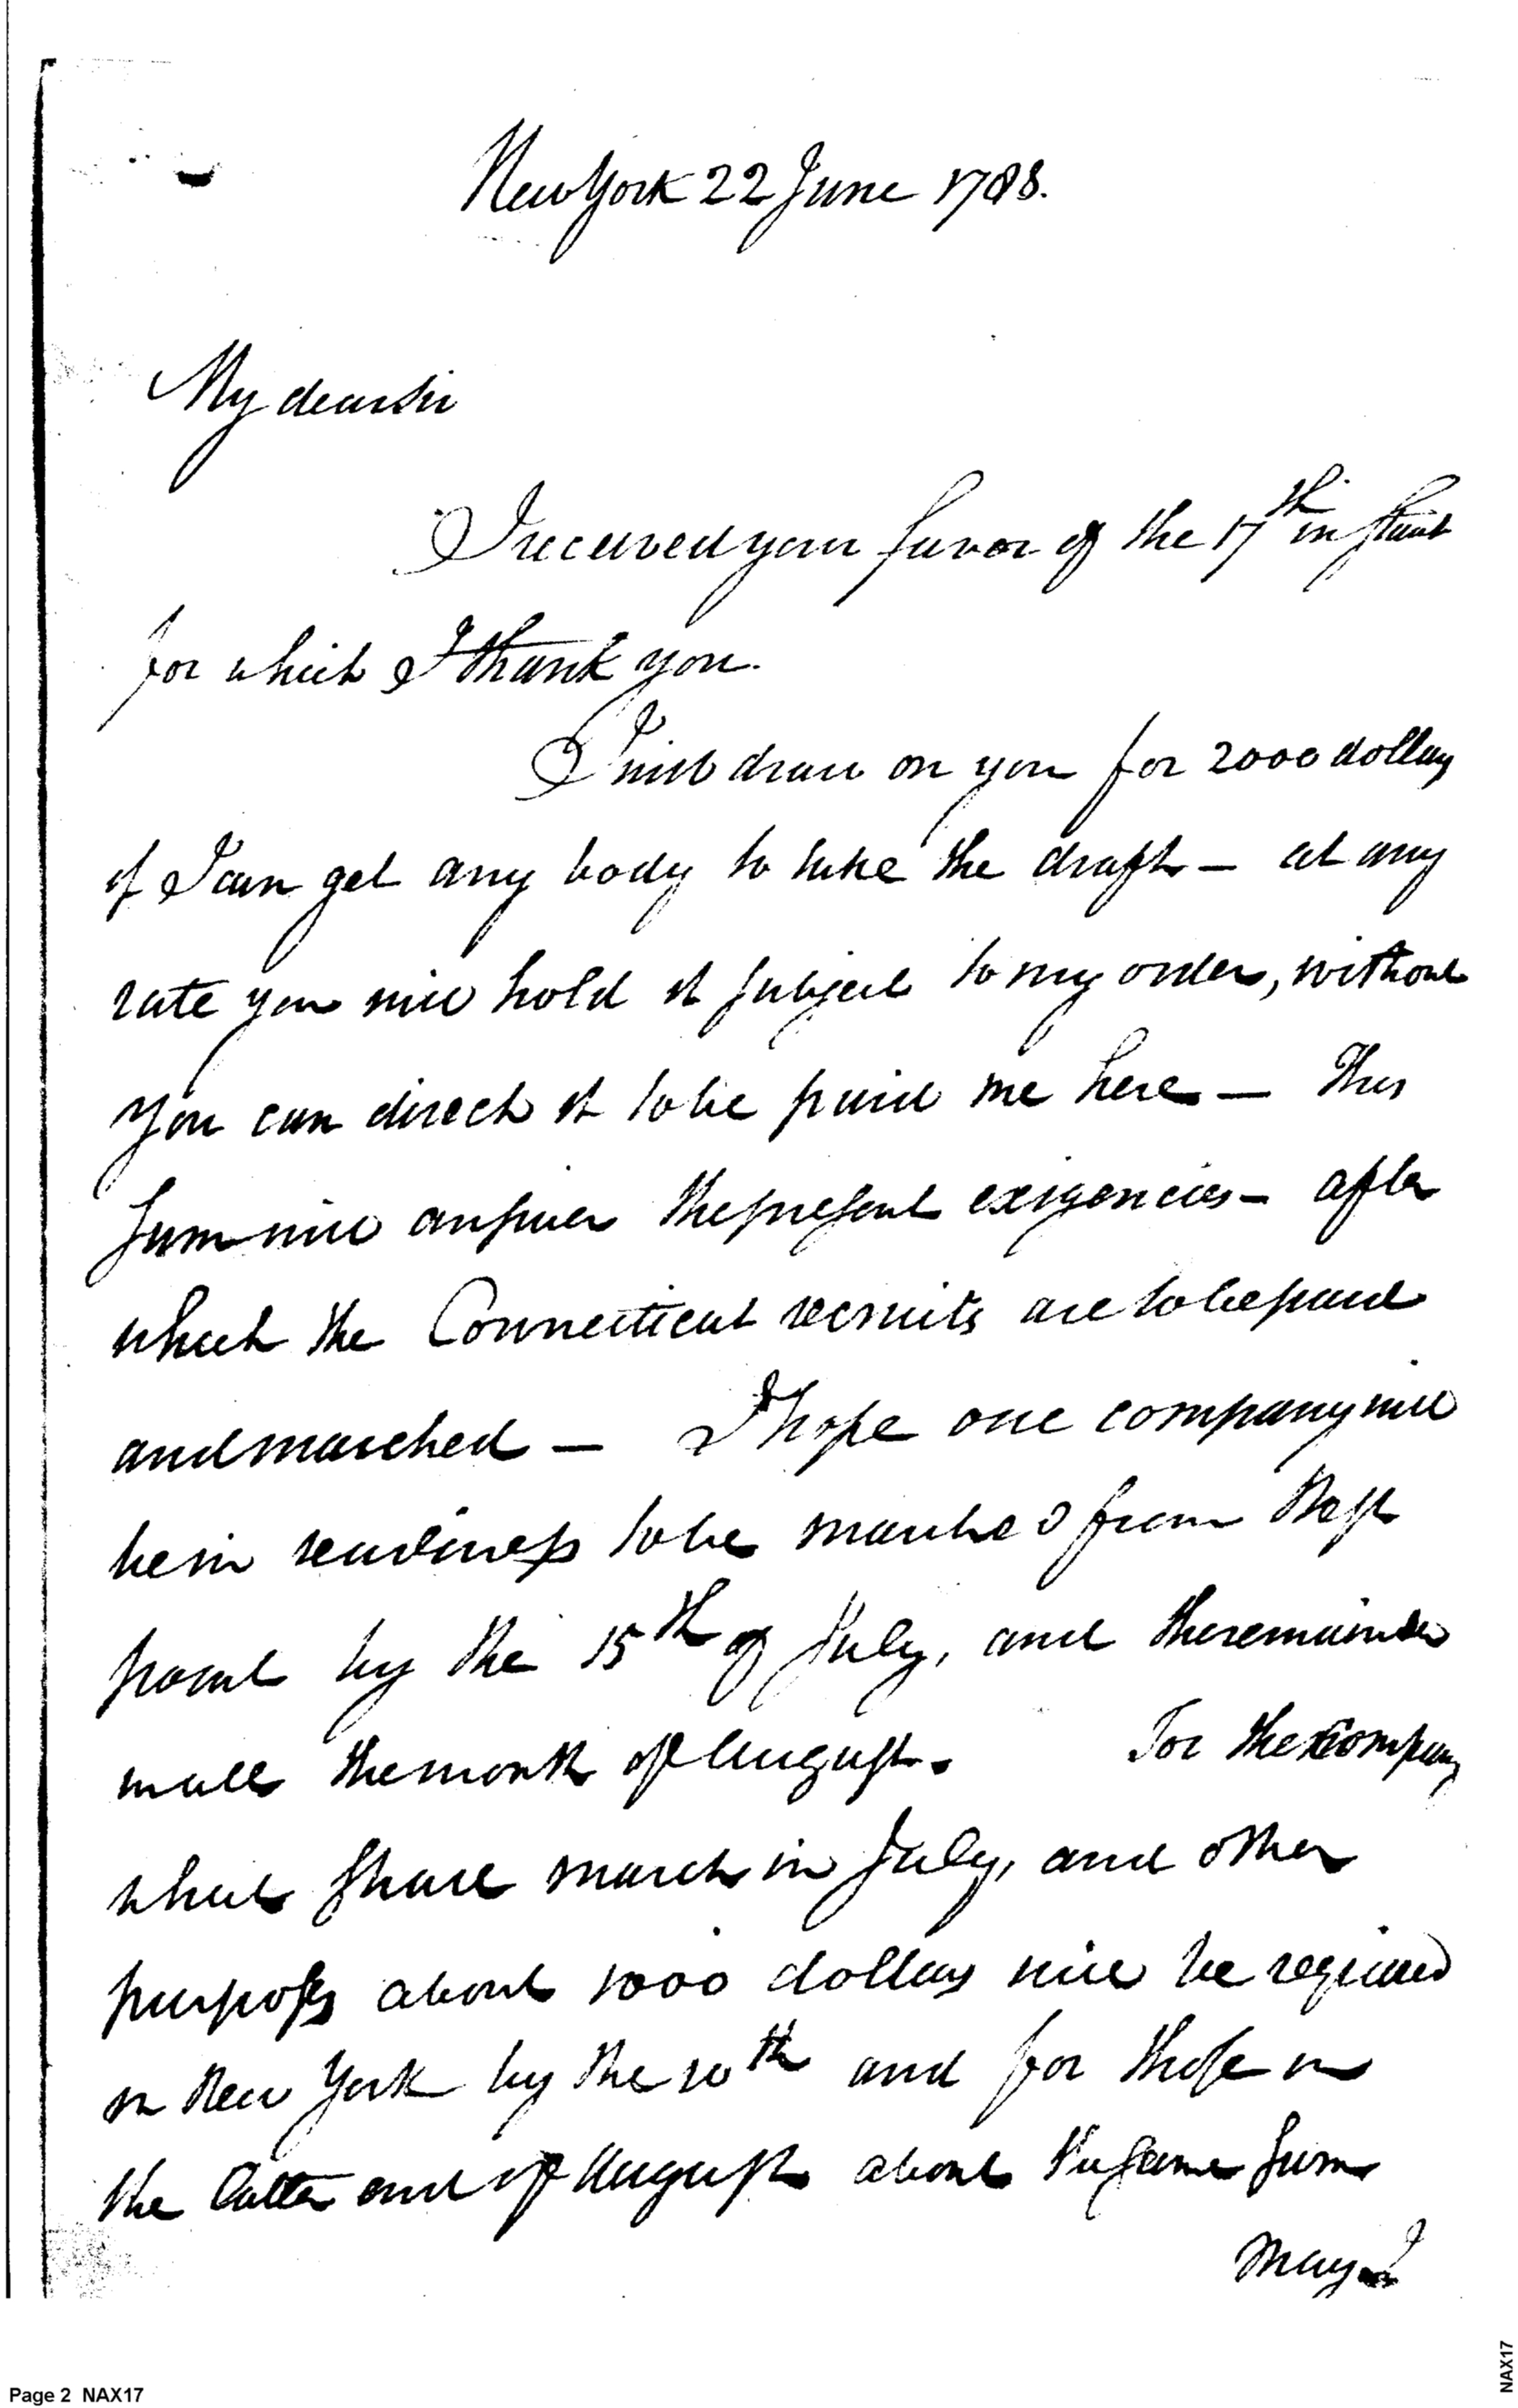 New York 22 June 1788.
My dear sir
I received your favor of the 17th instant
for which I thank you.
I will draw on you for 2000 dollars
if I can get any body to take the draft — at any
rate you will hold it subject to my order, without
you can direct it to be paid me here — This
sum will answer the present exigencies — after
which the Connecticut recruits are to be paid
and marched — I hope one company will
be in readiness to be marched from West
point by the 15th of July, and the remainder
in all the month of August. For the company
which shall march in July, and other
purposes about 1000 dollars will be required
in New York by the 10th and for those in
the latter end of August about the same sum
May I
Page 2 NAX17
NAX17